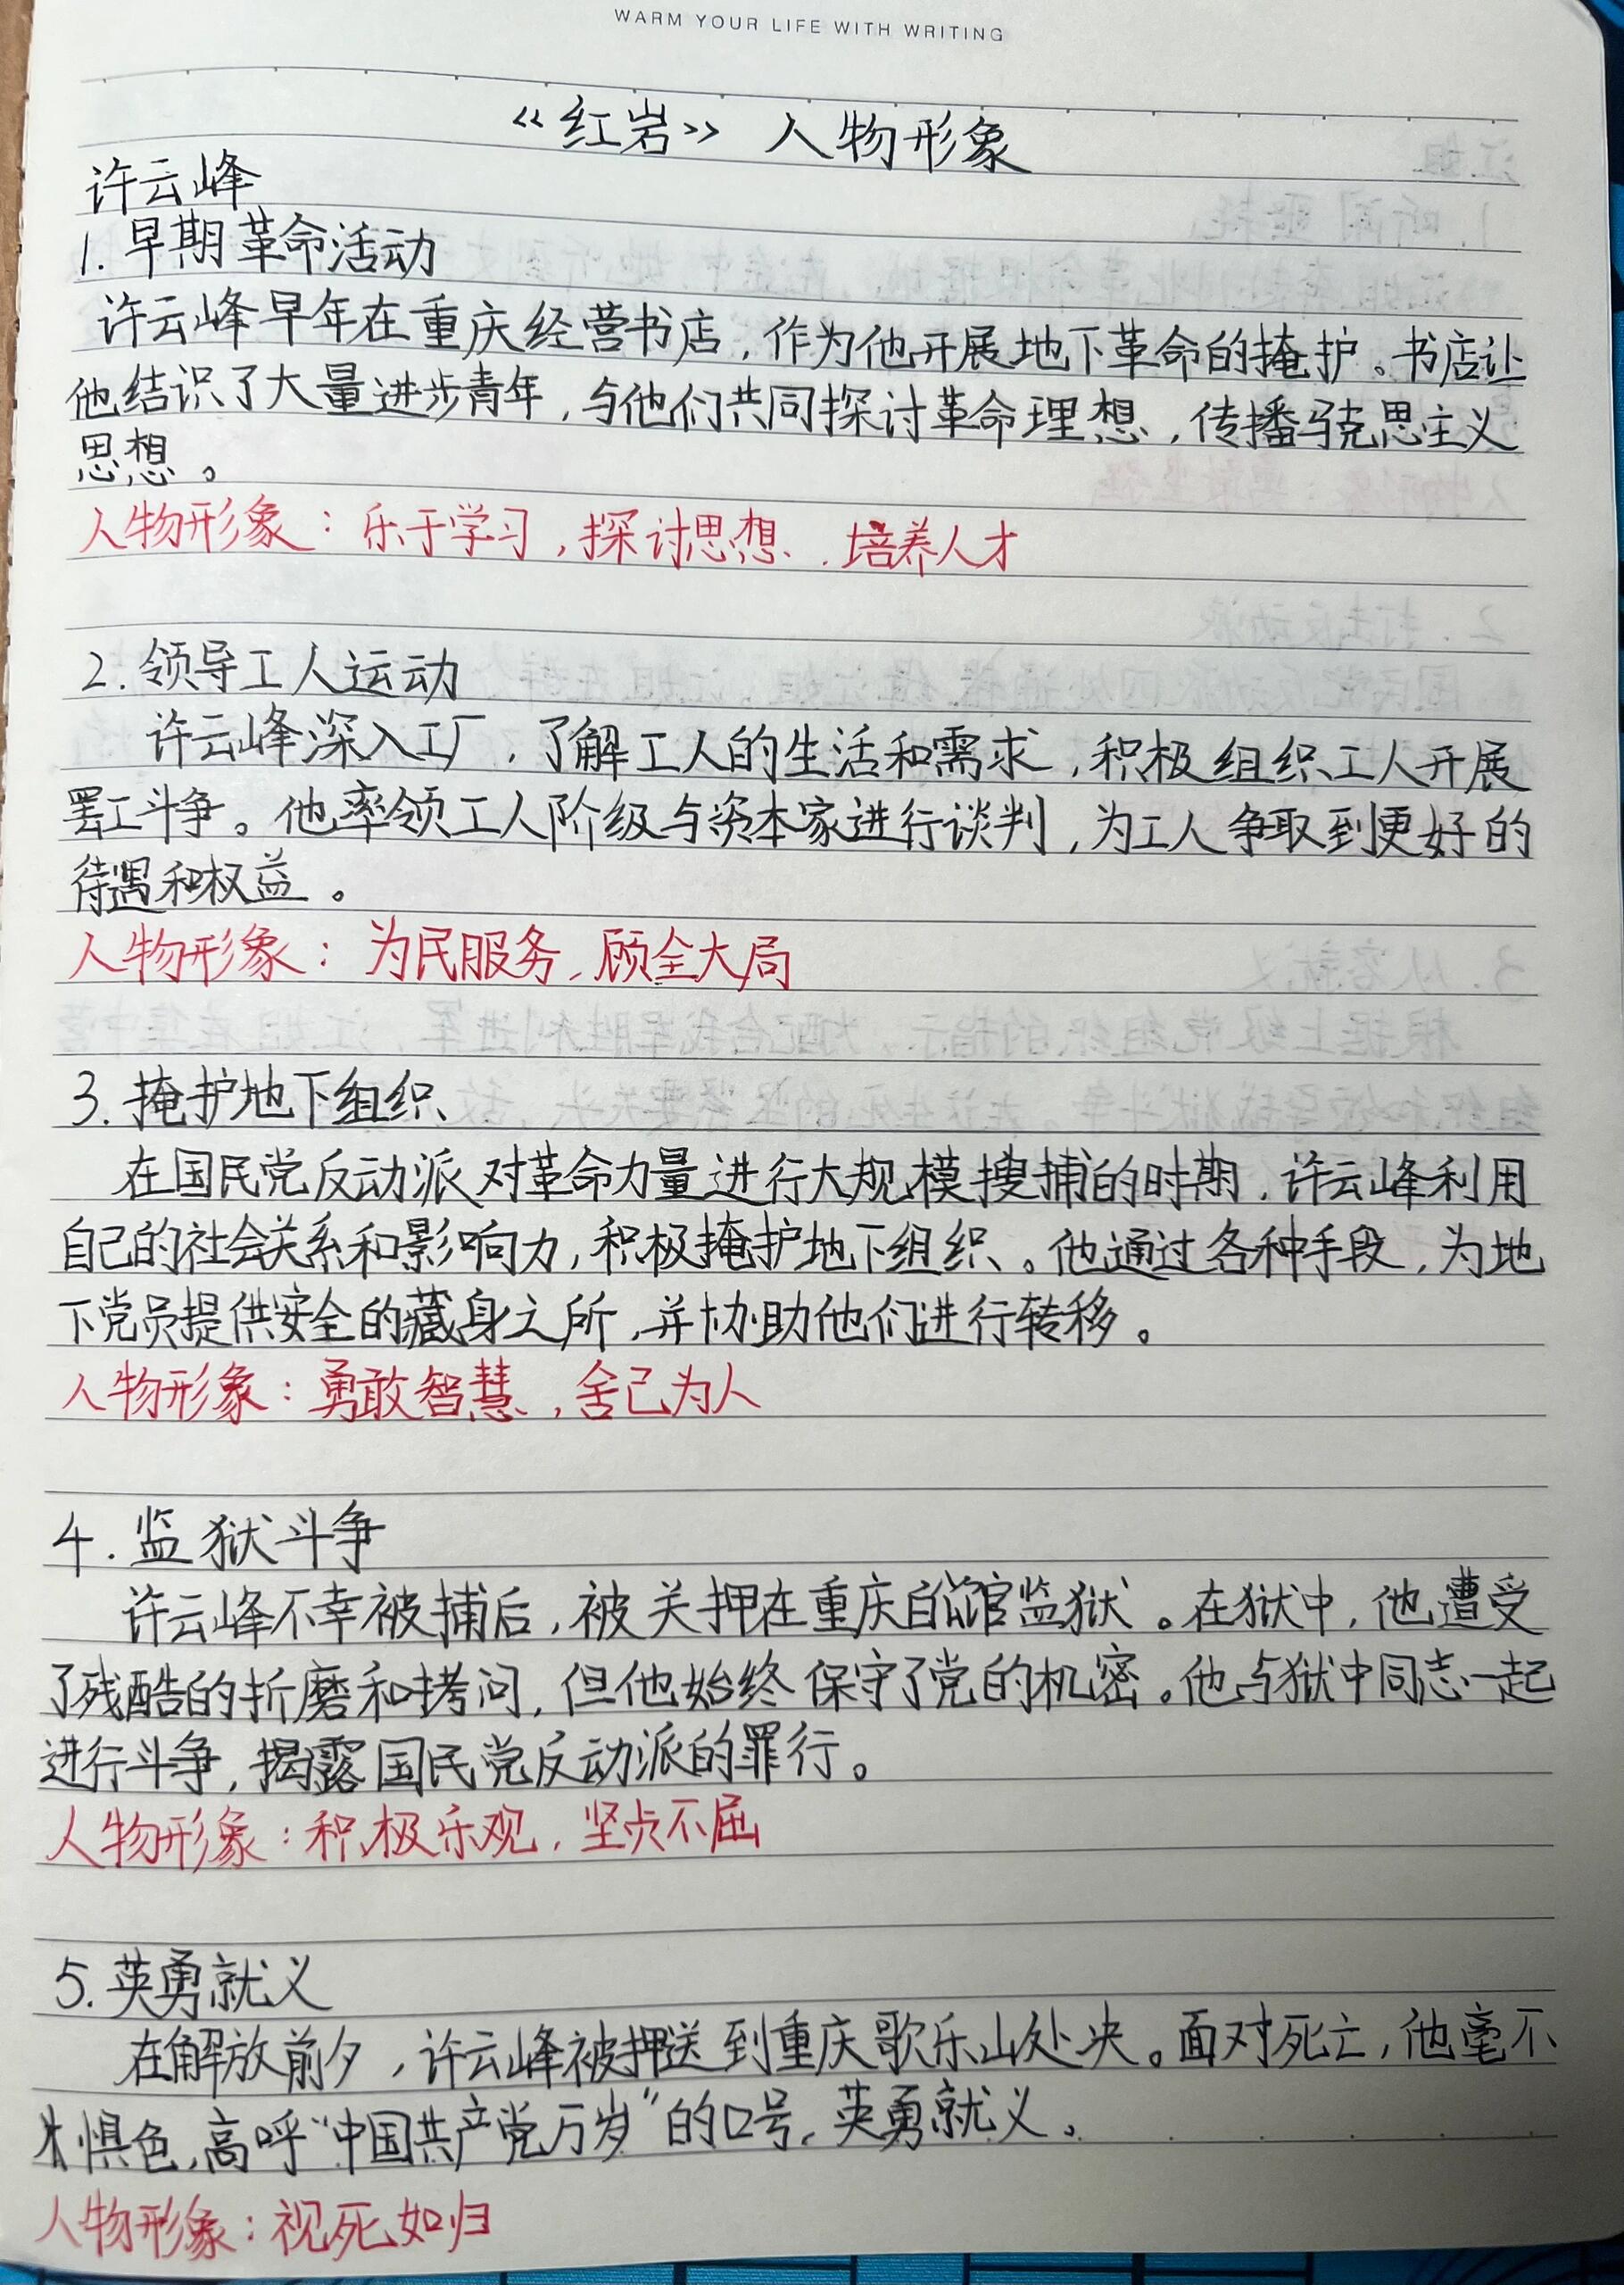 WARM YOUR LIFE WITH WRITING
《红岩》 人物形象
许云峰
1. 早期革命活动
许云峰早年在重庆经营书店，作为他开展地下革命的掩护。书店让
他结识了大量进步青年，与他们共同探讨革命理想，传播马克思主义
思想。
人物形象：乐于学习，探讨思想，培养人才
2. 领导工人运动
许云峰深入工厂，了解工人的生活和需求，积极组织工人开展
罢工斗争。他率领工人阶级与资本家进行谈判，为工人争取到更好的
待遇和权益。
人物形象：为民服务，顾全大局
3. 掩护地下组织
在国民党反动派对革命力量进行大规模搜捕的时期，许云峰利用
自己的社会关系和影响力，积极掩护地下组织。他通过各种手段，为地
下党员提供安全的藏身之所，并协助他们进行转移。
人物形象：勇敢智慧，舍己为人
4. 监狱斗争
许云峰不幸被捕后，被关押在重庆白公馆监狱。在狱中，他遭受
了残酷的折磨和拷问，但他始终保守了党的机密。他与狱中同志一起
进行斗争，揭露国民党反动派的罪行。
人物形象：积极乐观，坚贞不屈
5. 英勇就义
在解放前夕，许云峰被押送到重庆歌乐山处决。面对死亡，他毫不
惧色，高呼“中国共产党万岁”的口号，英勇就义。
人物形象：视死如归